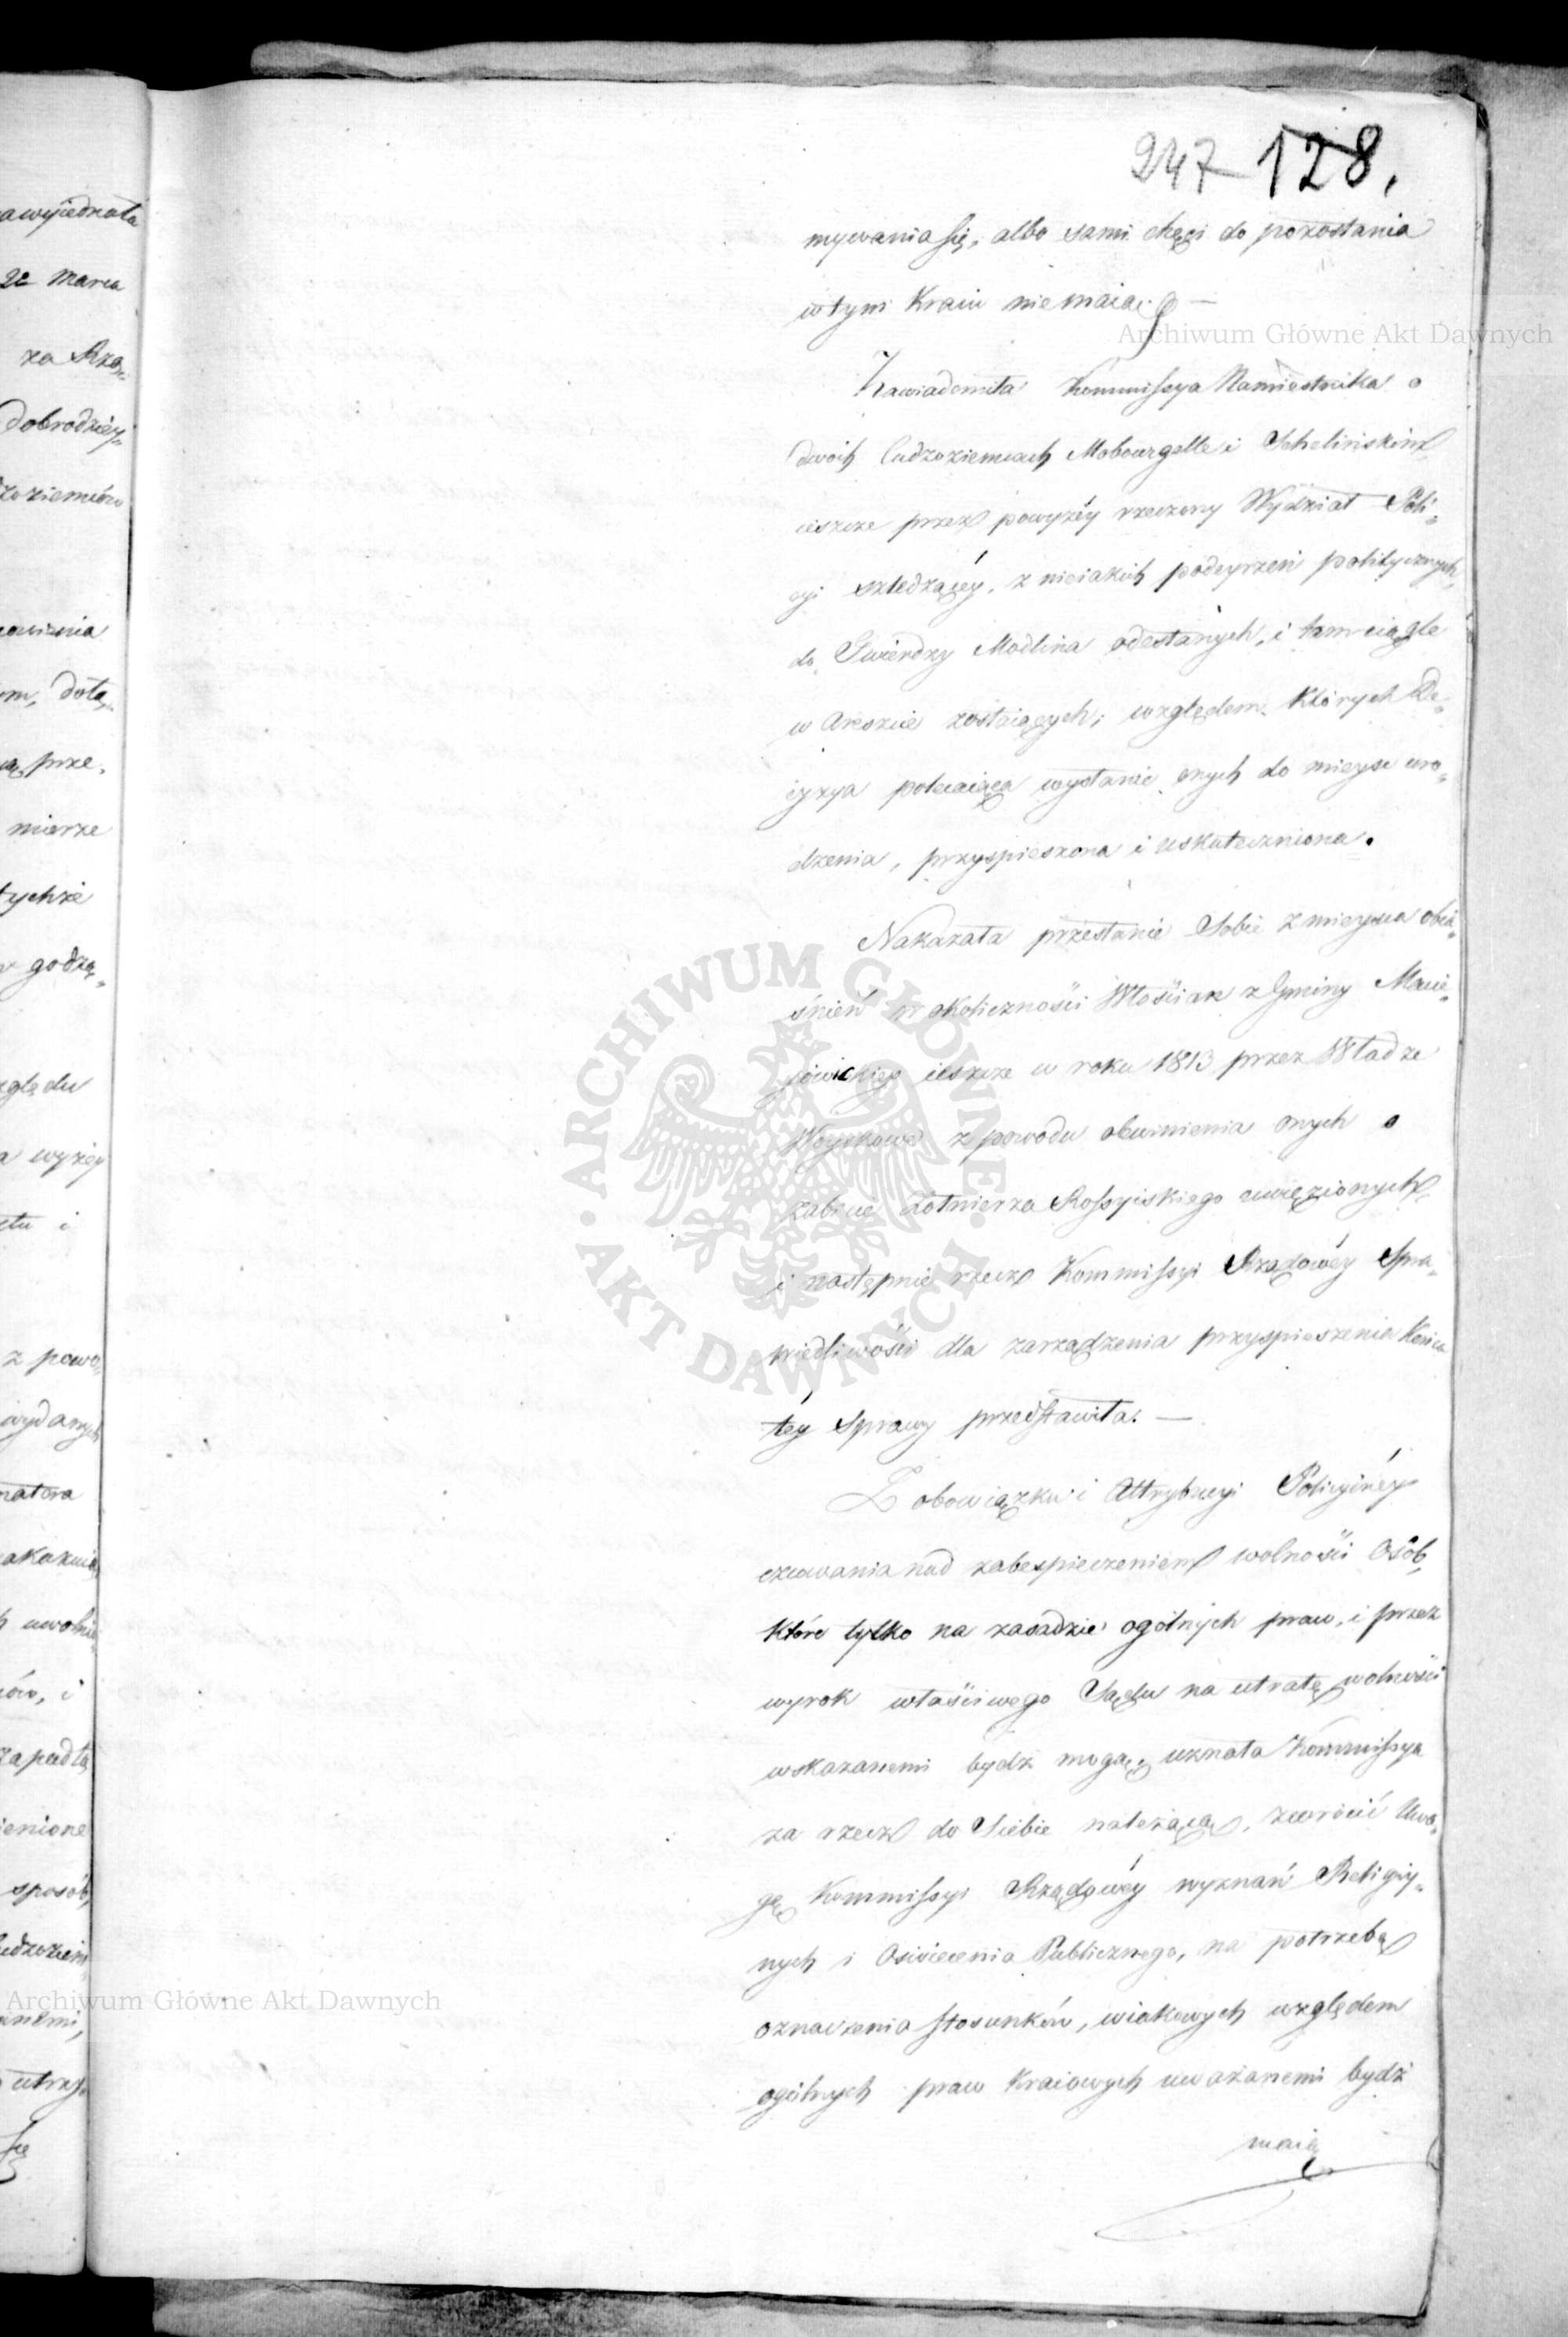 247 128.
mywania się, albo sami chęci do pozostania
w tym Kraiu niemaią. —
Zawiadomiła Kommissya Namiestnika o
dwóch Cudzoziemcach Mobourgelle i Schelińskim
ieszcze przez powyżéy rzeczony Wydział Poli-
cyi szledzącéy, z nieiakich podeyrzeń politycznych,
do Twierdzy Modlina odesłanych, i tam ciągle
w Areszcie zostaiących, względem których De-
cyzya polecaiąca wysłanie onych do mieysc uro-
dzenia, przyspieszona i uskuteczniona.
Nakazała przesłanie Sobie z mieysca obia-
śnień w okoliczności Włościan z Gminy Macie-
jowickiey ieszcze w roku 1813 przez Władze
Woyskowe z powodu obwinienia onych o
zabicie Żołnierza Rossyiskiego uwięzionych
i następnie rzecz Kommissyi Rządowéy Spra-
wiedliwości dla zarządzenia przyspieszenia Końca
téy Sprawy przedstawiła. —
Z obowiązku i Attrybucyi Policyinéy
czuwania nad zabespieczeniem wolności Osób,
które tylko na zasadzie ogólnych praw, i przez
wyrok właściwego Sądu na utratę wolności
wskazanemi bydź mogą, uznała Kommissya
za rzecz do Siebie należącą, zwrócić Uwa-
gę Kommissyi Rządowéy wyznań Religiy-
nych i Oświecenia Publicznego, na potrzebę
oznaczenia stosunków, w iakowych względem
ogólnych praw Kraiowych uważanemi bydź
maią
awyiedzała
22 Marca
za Rzą-
Dobrodziey-
zoziemców
owienia
prze-
mierze
tychże
godzą-
zględu
a wyżey
i
z powo-
wydanych
ów, i
zapadłą
ienione
sposób,
utrzy-
się
Archiwum Główne Akt Dawnych
ARCHIWUM GŁÓWNE · AKT DAWNYCH ·
Archiwum Główne Akt Dawnych